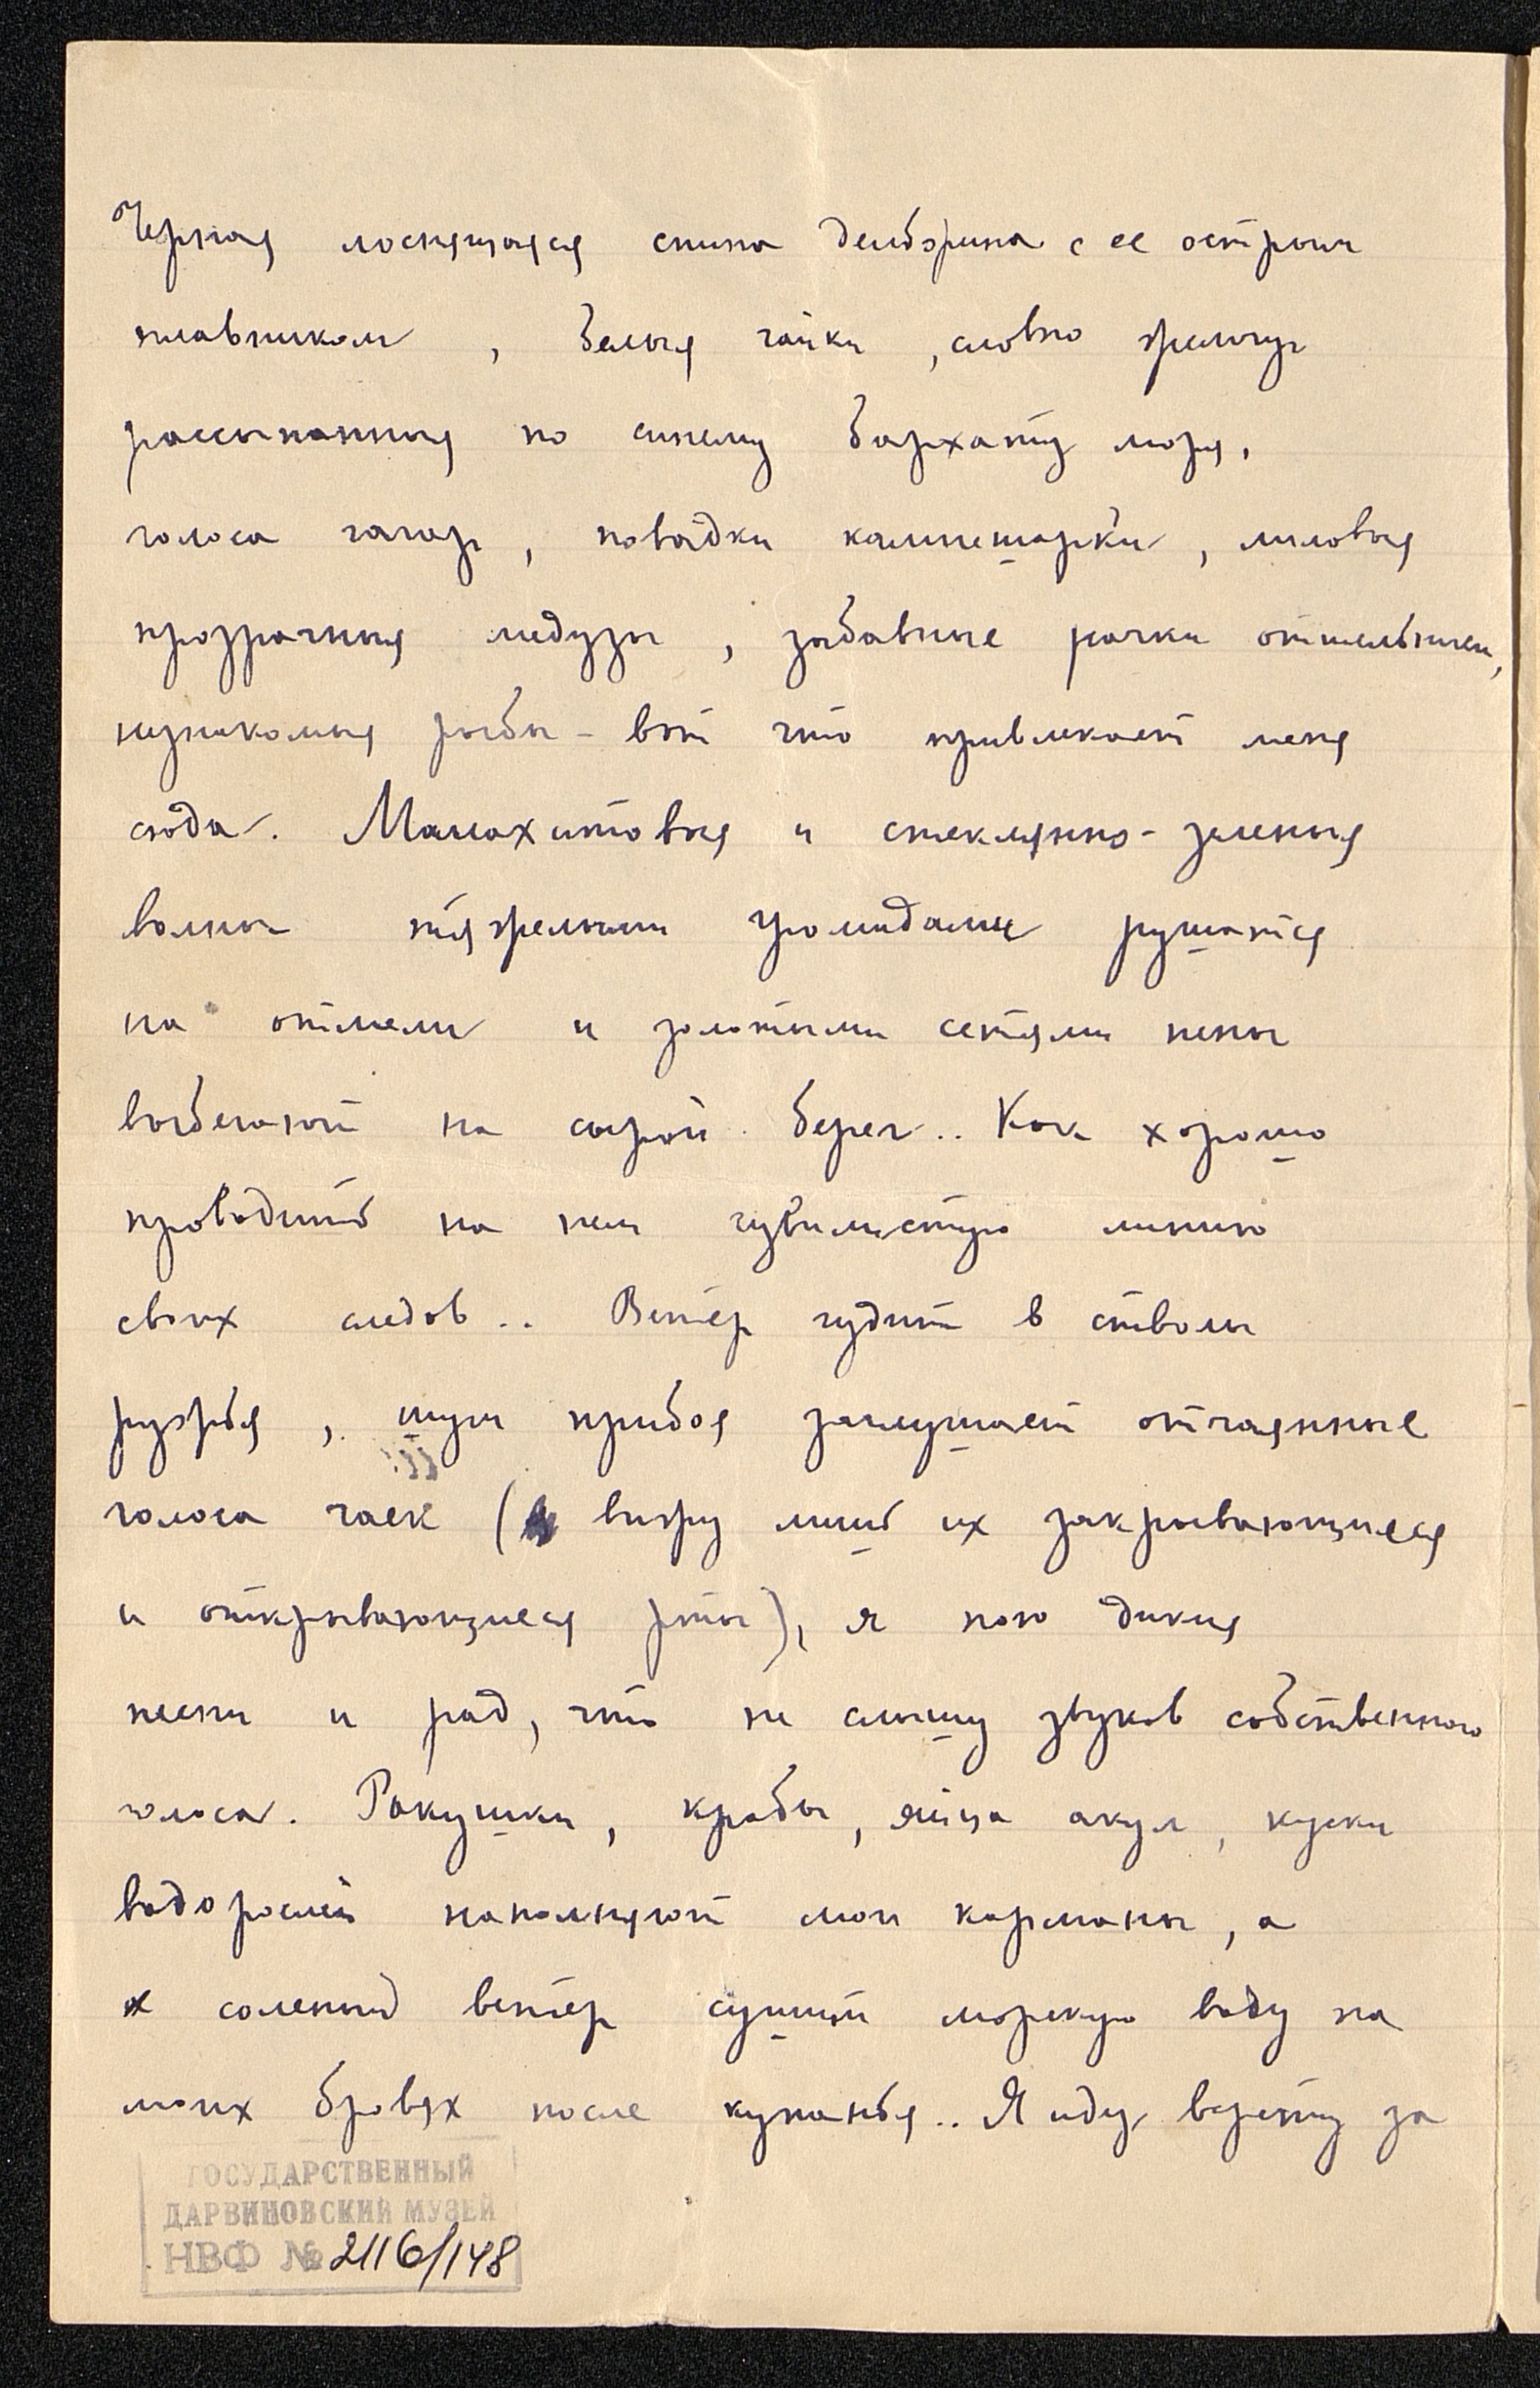 Черная лоснящаяся спина дельфина с ее острым
плавником, белыя чайки, словно жемчуг
рассыпанныя по синему бархату моря,
голоса гагар, повадки камнешарки, лиловыя
прозрачныя медузы, забавные рачки отшельники,
незнакомыя рыбы - вот что привлекает меня
сюда. Малахитовыя и стеклянно-зеленыя
волны тяжелыми громадами рушатся
на отмели и золотыми сетями пены
выбегают на сырой берег.. Как хорошо
проводить на нем извилистую линию
своих следов.. Ветер гудит в стволы
ружья, шум прибоя заглушает отчаянные
голоса чаек (я вижу лишь их закрывающиеся
и открывающиеся рты), я пою дикия
песни и рад, что не слышу звуков собственного
голоса. Ракушки, крабы, яйца акул, куски
водорослей наполняют мои карманы, а
соленый ветер сушит морскую воду на
моих бровях после купанья.. Я иду версту за
ГОСУДАРСТВЕННЫЙ
ДАРВИНОВСКИЙ МУЗЕЙ
НВФ № 2116/148